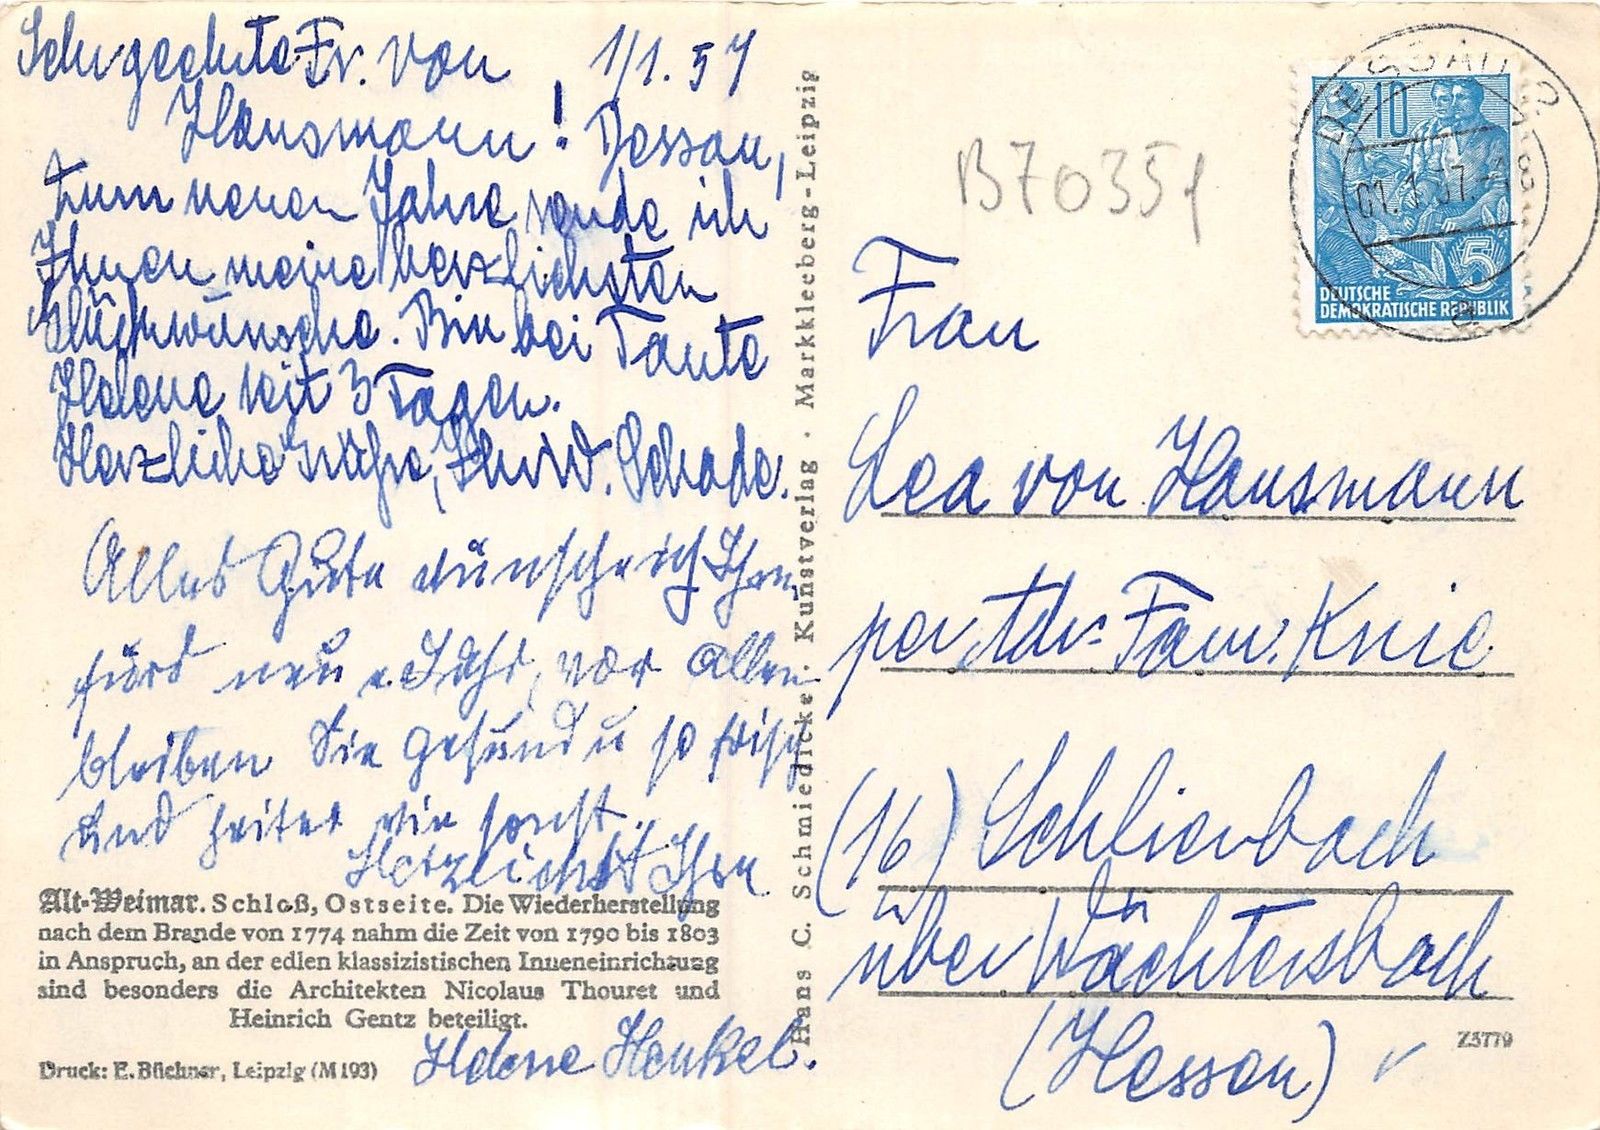 Sehr geehrte Fr. von 1/1. 57
Hausmann! Dessau,
Zum neuen Jahre sende ich
Ihnen meine herzlichsten
Glückwünsche. Bin bei Tante
Helene seit 3 Tagen.
Herzliche Grüße, Ihr W. Schade.
Alles Gute wünsche ich Ihnen
fürs neue Jahr, vor allem
bleiben Sie gesund u so frisch
und heiter wie sonst.
Herzlichst Ihre
Helene Henkel.
Alt-Weimar. Schloß, Ostseite. Die Wiederherstellung
nach dem Brande von 1774 nahm die Zeit von 1790 bis 1803
in Anspruch, an der edlen klassizistischen Inneneinrichtung
sind besonders die Architekten Nicolaus Thouret und
Heinrich Gentz beteiligt.
Druck: E. Büchner, Leipzig (M 193)
Hans C. Schmiedicke · Kunstverlag · Markkleeberg-Leipzig
B70351
DESSAU 2
01.1.57.-18
a
10
5
DEUTSCHE
DEMOKRATISCHE REPUBLIK
Frau
Lea von Hausmann
per Adr. Fam. Knie
(16) Schlierbach
über Wächtersbach
(Hessen)
Z5779